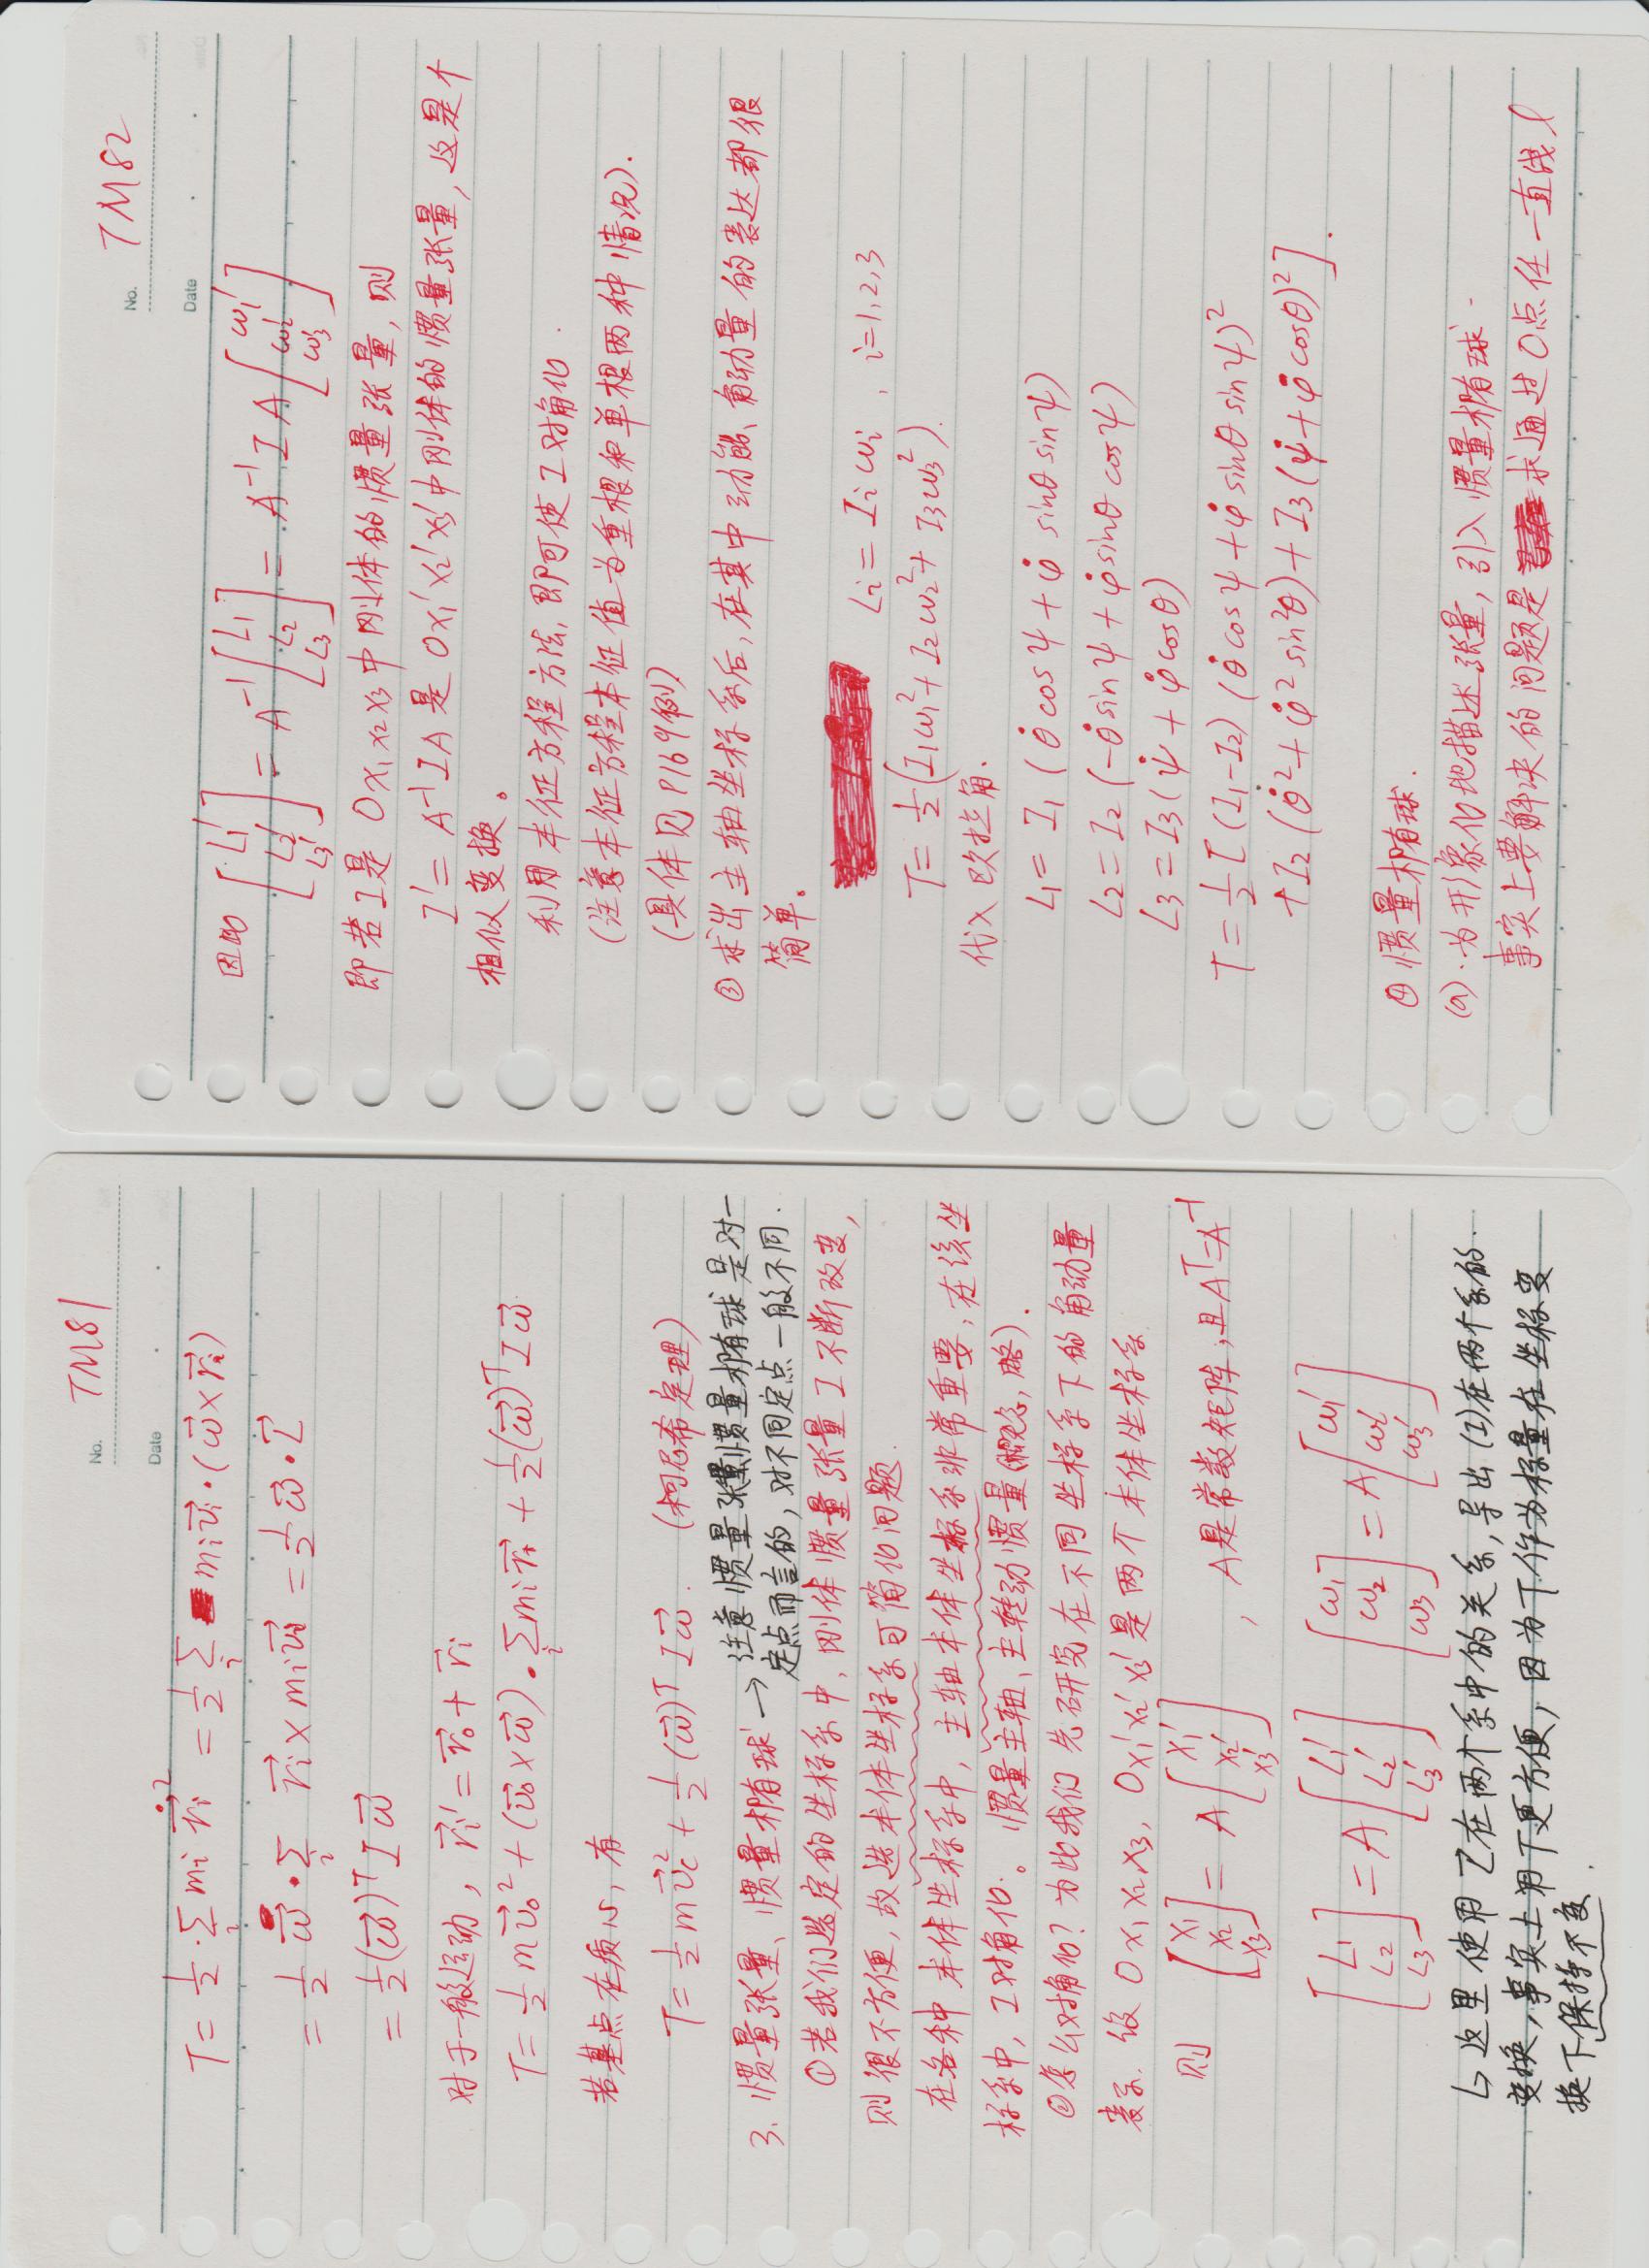 No. TM81
Date
T = \frac{1}{2} \cdot \sum_i m_i \dot{\vec{r_i}}^2 = \frac{1}{2} \sum_i m_i \vec{v_i} \cdot (\vec{ω} × \vec{r_i})
= \frac{1}{2} \vec{ω} \cdot \sum_i \vec{r_i} × m_i \vec{v_i} = \frac{1}{2} \vec{ω} \cdot \vec{L}
= \frac{1}{2} (\vec{ω})^T I \vec{ω}
对于一般运动, \vec{r_i}' = \vec{r_0} + \vec{r_i}
T = \frac{1}{2} m \vec{v_0}^2 + (\vec{v_0} × \vec{ω}) \cdot \sum_i m_i \vec{r_i} + \frac{1}{2} (\vec{ω})^T I \vec{ω}
若基点在质心, 有
T = \frac{1}{2} m \vec{v_c}^2 + \frac{1}{2} (\vec{ω})^T I \vec{ω}. (柯尼希定理)
3. 惯量张量、惯量椭球 → 注意惯量张量惯量椭球是对一
定点而言的, 对不同定点一般不同.
①若我们选定的坐标系中, 刚体惯量张量I不断改变,
则很不方便, 故选本体坐标系可简化问题.
在各种本体坐标系中, 主轴本体坐标系非常重要, 在该坐
标系中, I对角化. 惯量主轴、主转动惯量(概念, 略).
②怎么对角化? 为此我们先研究在不同坐标系下的角动量
表示. 设 Ox₁x₂x₃, Ox₁'x₂'x₃' 是两个本体坐标系
则 [x₁ x₂ x₃] = A [x₁' x₂' x₃'], A是常数矩阵, 且 A^T = A^{-1}
[L₁ L₂ L₃] = A [L₁' L₂' L₃'] [ω₁ ω₂ ω₃] = A [ω₁' ω₂' ω₃']
↳ 这里使用 \vec{L} 在两个系中的关系, 导出 (I) 在两个系的.
变换, 事实上用T更方便, 因为T作为标量在坐标变
换下保持不变.
No. TM82
Date
因此 [L₁' L₂' L₃'] = A^{-1} [L₁ L₂ L₃] = A^{-1} I A [ω₁' ω₂' ω₃']
即若I是 Ox₁x₂x₃ 中刚体的惯量张量, 则
I' = A^{-1} I A 是 Ox₁'x₂'x₃' 中刚体的惯量张量, 这是个
相似变换。
利用本征方程方法, 即可使I对角化.
(注意本征方程本征值为重根和单根两种情况).
(具体见P169例)
③求出主轴坐标系后, 在其中动能、角动量的表达都很
简单。
L_i = I_i ω_i, i=1,2,3
T = \frac{1}{2} (I₁ω₁² + I₂ω₂² + I₃ω₃²).
代入欧拉角.
L₁ = I₁ (\dot{θ} cosψ + \dot{φ} sinθ sinψ)
L₂ = I₂ (-\dot{θ} sinψ + \dot{φ} sinθ cosψ)
L₃ = I₃ (\dot{ψ} + \dot{φ} cosθ)
T = \frac{1}{2} [(I₁-I₂) (\dot{θ} cosψ + \dot{φ} sinθ sinψ)²
+ I₂ (\dot{θ}² + \dot{φ}² sin²θ) + I₃ (\dot{ψ} + \dot{φ} cosθ)²].
④惯量椭球.
(a). 为形象化地描述张量, 引入惯量椭球.
事实上要解决的问题是 求通过O点任一直线l